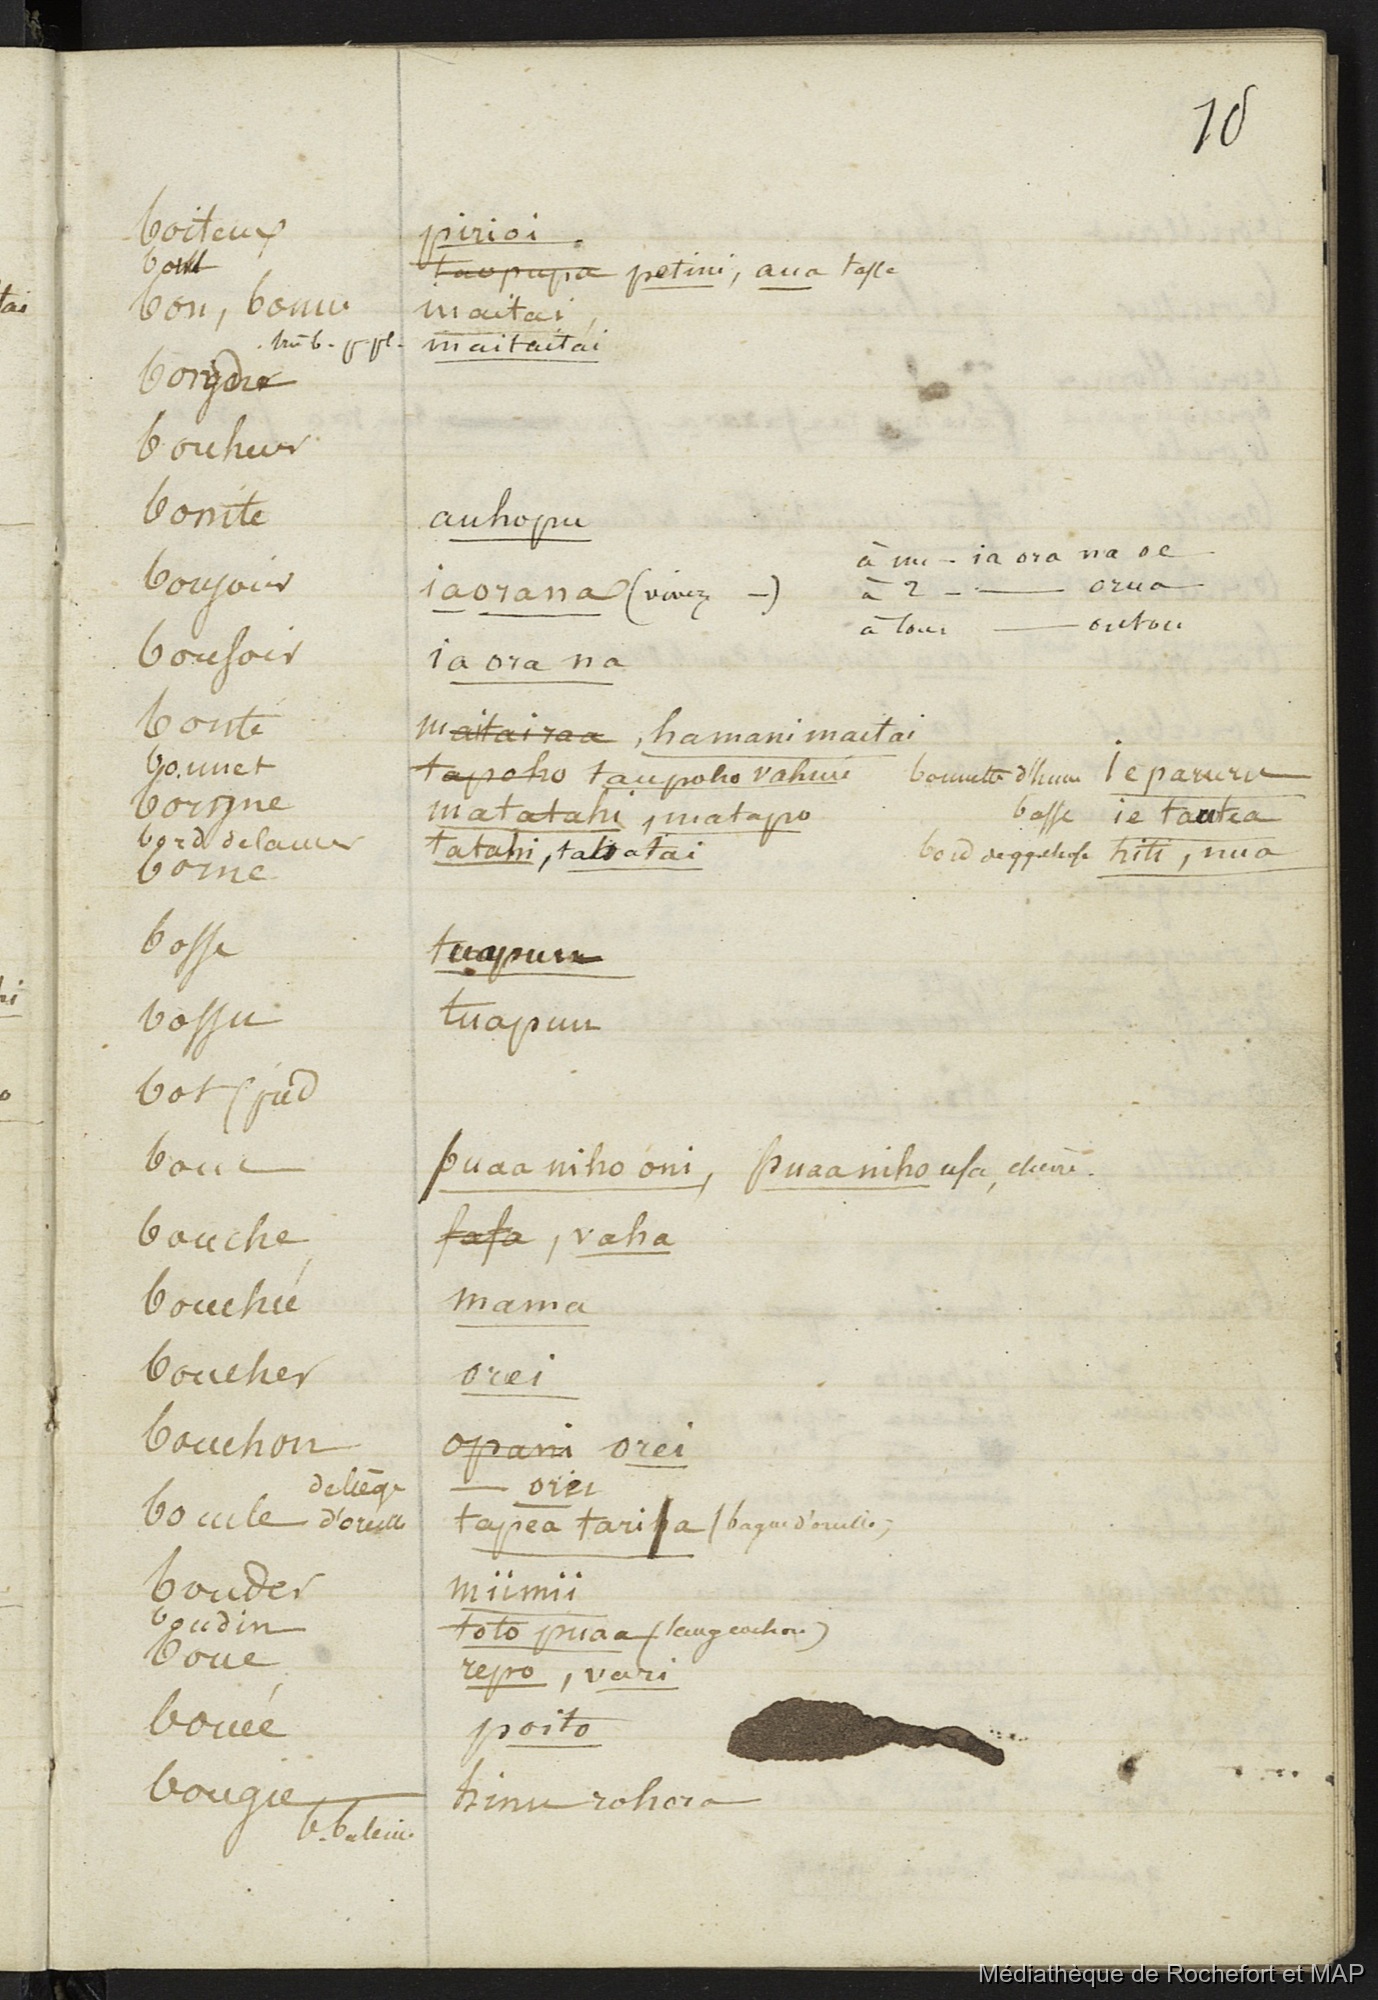 18
boiteux pirioi
bol taopupa petini, aua tasse
bon, bonne maitai,
très b. pl. maitaitai
bonheur
bonite auhopu
à un - ia ora na oe
bonjour iaorana (vivez -) à 2 - orua
à tous outou
bonsoir ia ora na
bonté maitairaa, hamani maitai
bonnet tapoho taupoho vahine bonnette d'hune ie paruru
borgne matatahi, matapo basse ie tautea
bord de la mer tatahi, tahatai bord hiti, nua
borne
bosse tuapuu
bossu tuapuu
bot (pied
bouc puaa niho oni, puaa niho ufa, chèvre.
bouche fafa, vaha
bouchée mama
boucher orei
bouchon opani orei
de liège — orei
boucle d'oreille tapea taria (bague d'oreille)
bouder miimii
boudin toto puaa (sang cochon)
boue repo, vari
bouée poito
bougie hinu rohoro
b. baleine
Médiathèque de Rochefort et MAP